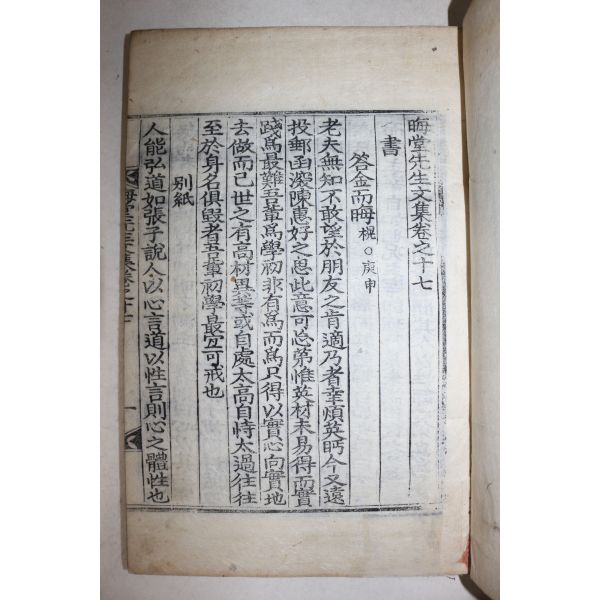 晦堂先生文集卷之十七
書
答金而晦 梶○庚申
老夫無知不敢望於朋友之肯適乃者幸煩英眄今又遠
投郵函深陳惠好之思此意可忘第惟英材未易得而實
踐爲最難吾輩爲學初非有爲而爲只得以實心向實地
去做而已世之有高材異等或自處太高自恃太過徃徃
至於身名俱毀者吾輩初學最宜可戒也
別紙
人能弘道如張子說人以心言道以性言則心之體性也
晦堂先生文集卷之十七
一